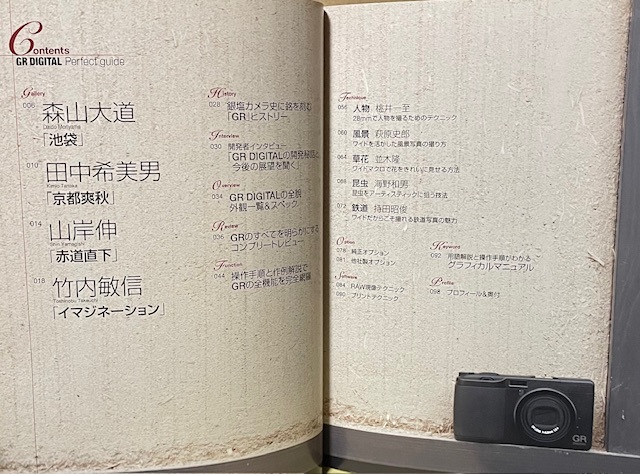 Contents
GR DIGITAL Perfect guide
Gallery
006 森山大道
Daido Moriyama
「池袋」
010 田中希美男
Kimio Tanaka
「京都爽秋」
014 山岸伸
Shin Yamagishi
「赤道直下」
018 竹内敏信
Toshinobu Takeuchi
「イマジネーション」
History
028 銀塩カメラ史に銘を刻む
「GR」ヒストリー
Interview
030 開発者インタビュー
「GR DIGITALの開発秘話と
今後の展望を聞く」
Overview
034 GR DIGITALの全貌
外観一覧&スペック
Review
036 GRのすべてを明らかにする
コンプリートレビュー
Function
044 操作手順と作例解説で
GRの全機能を完全網羅
Technique
056 人物 桃井一至
28mmで人物を撮るためのテクニック
060 風景 萩原史郎
ワイドを活かした風景写真の撮り方
064 草花 並木隆
ワイドマクロで花をきれいに見せる方法
068 昆虫 海野和男
昆虫をアーティスティックに狙う技法
072 鉄道 持田昭俊
ワイドだからこそ撮れる鉄道写真の魅力
Option
078 純正オプション
081 他社製オプション
Software
084 RAW現像テクニック
090 プリントテクニック
Keyword
092 用語解説と操作手順がわかる
グラフィカルマニュアル
Profile
098 プロフィール&奥付
GR